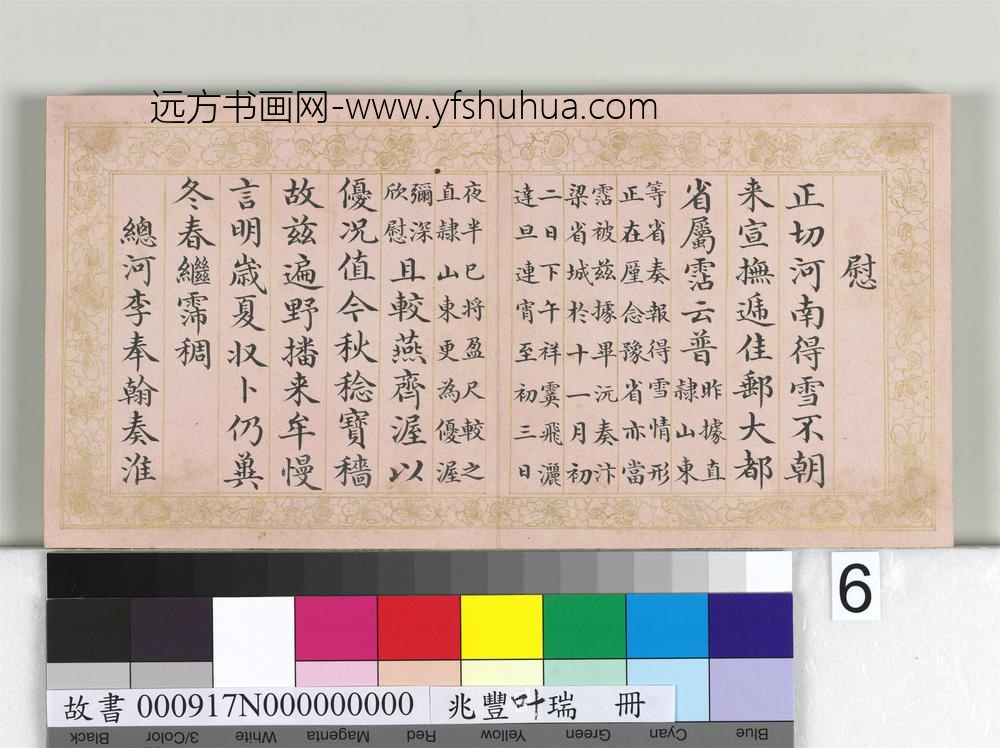 远方书画网-www.yfshuhua.com
慰
正切河南得雪不朝
来宣撫遞佳郵大都
省屬霑云普
昨據直
隷山東
等省奏報得雪情形
正在廑念豫省亦當
霑被兹據畢沅奏汴
梁省城於十一月初
二日下午祥霙飛灑
達旦連宵至初三日
夜半已将盈尺較之
直隷山東更為優渥
彌深
欣慰
且較燕齊渥以
優况值今秋稔寶穡
故兹遍野播来牟慢
言明歲夏収卜仍兾
冬春繼霈稠
總河李奉翰奏淮
6
故書 000917N000000000 兆豐叶瑞 冊
Black
3/Color
White
Magenta
Red
Yellow
Green
Cyan
Blue